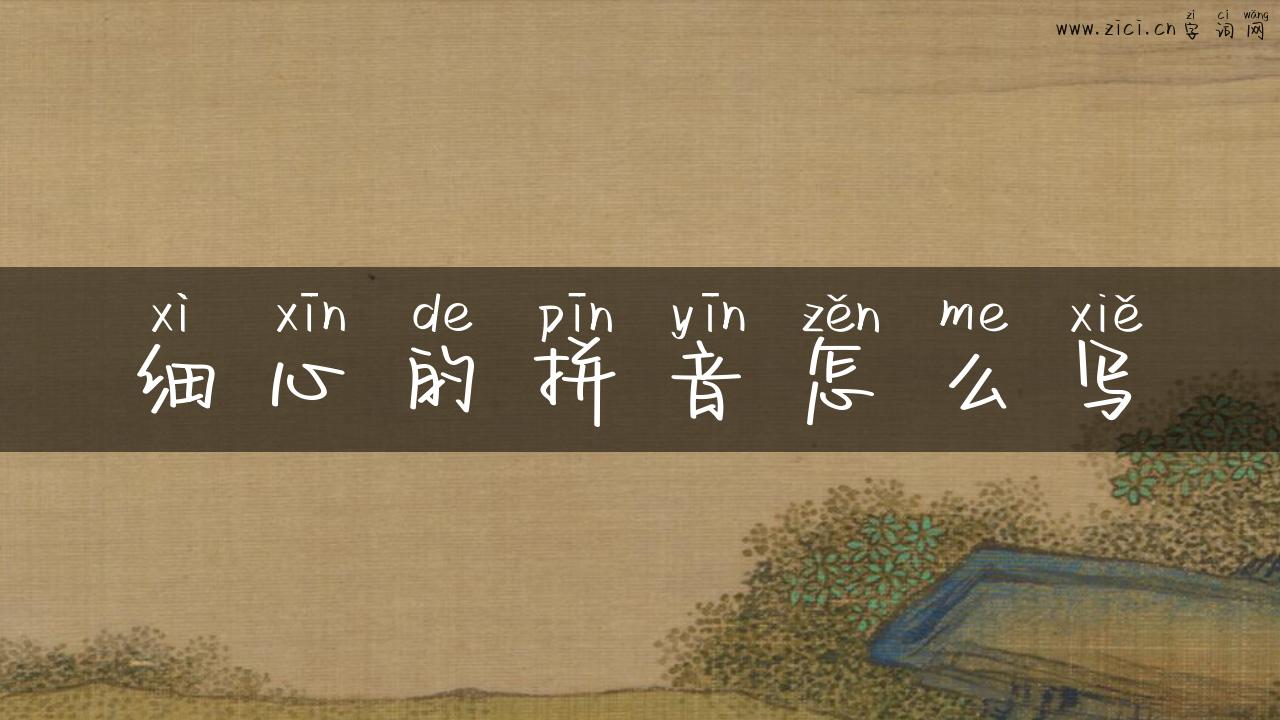 zì cí wǎng
www.zici.cn 字词网
xì xīn de pīn yīn zěn me xiě
细心的拼音怎么写